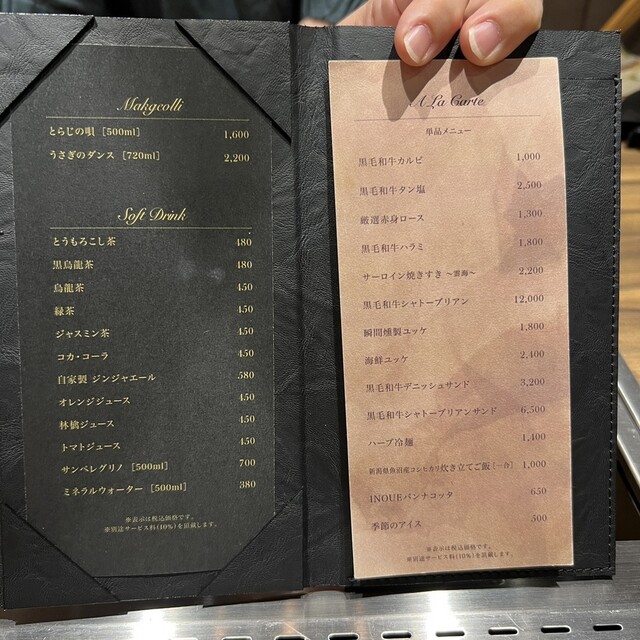 Makgeolli
とらじの唄 [500ml] 1,600
うさぎのダンス [720ml] 2,200
Soft Drink
とうもろこし茶 480
黒烏龍茶 480
烏龍茶 450
緑茶 450
ジャスミン茶 450
コカ・コーラ 450
自家製 ジンジャエール 580
オレンジジュース 450
林檎ジュース 450
トマトジュース 450
サンペレグリノ [500ml] 700
ミネラルウォーター [500ml] 380
※表示は税込価格です。
※別途サービス料(10%)を頂戴します。
A La Carte
単品メニュー
黒毛和牛カルビ 1,000
黒毛和牛タン塩 2,500
厳選赤身ロース 1,300
黒毛和牛ハラミ 1,800
サーロイン焼きすき ～雲海～ 2,200
黒毛和牛シャトーブリアン 12,000
瞬間燻製ユッケ 1,800
海鮮ユッケ 2,400
黒毛和牛デニッシュサンド 3,200
黒毛和牛シャトーブリアンサンド 6,500
ハーブ冷麺 1,400
新潟県魚沼産コシヒカリ炊き立てご飯 [一合] 1,000
INOUEパンナコッタ 650
季節のアイス 500
※表示は税込価格です。
※別途サービス料(10%)を頂戴します。